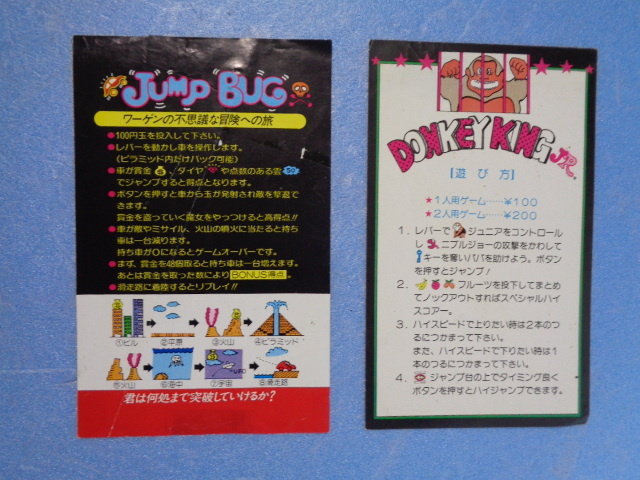 JUMP BUG
ワーゲンの不思議な冒険への旅
●100円玉を投入して下さい。
●レバーを動かし車を操作します。
(ピラミッド内だけバック可能)
●車が賞金 ダイヤ や点数のある雲
でジャンプすると得点となります。
●ボタンを押すと車から玉が発射され敵を撃退で
きます。
賞金を盗っていく魔女をやっつけると高得点!!
●車が敵やミサイル、火山の噴火に当たると持ち
車は一台減ります。
持ち車が0になるとゲームオーバーです。
●まず、賞金を48個取ると持ち車は一台増えます。
あとは賞金を取った数により BONUS得点。
●滑走路に着陸するとリプレイ!!
①ビル ②平原 ③火山 ④ピラミッド
⑤火山 ⑥海中 ⑦宇宙 ⑧滑走路
UFO
君は何処まで突破していけるか?
DONKEY KING JR.
【遊び方】
★1人用ゲーム……¥100
★2人用ゲーム……¥200
1. レバーで ジュニアをコントロール
し ニブルジョーの攻撃をかわして
キーを奪いパパを助けよう。ボタン
を押すとジャンプ!
2. フルーツを投下してまとめ
てノックアウトすればスペシャルハイ
スコアー。
3. ハイスピードで上りたい時は2本のつ
るにつかまって下さい。
また、ハイスピードで下りたい時は1
本のつるにつかまって下さい。
4. ジャンプ台の上でタイミング良く
ボタンを押すとハイジャンプできます。